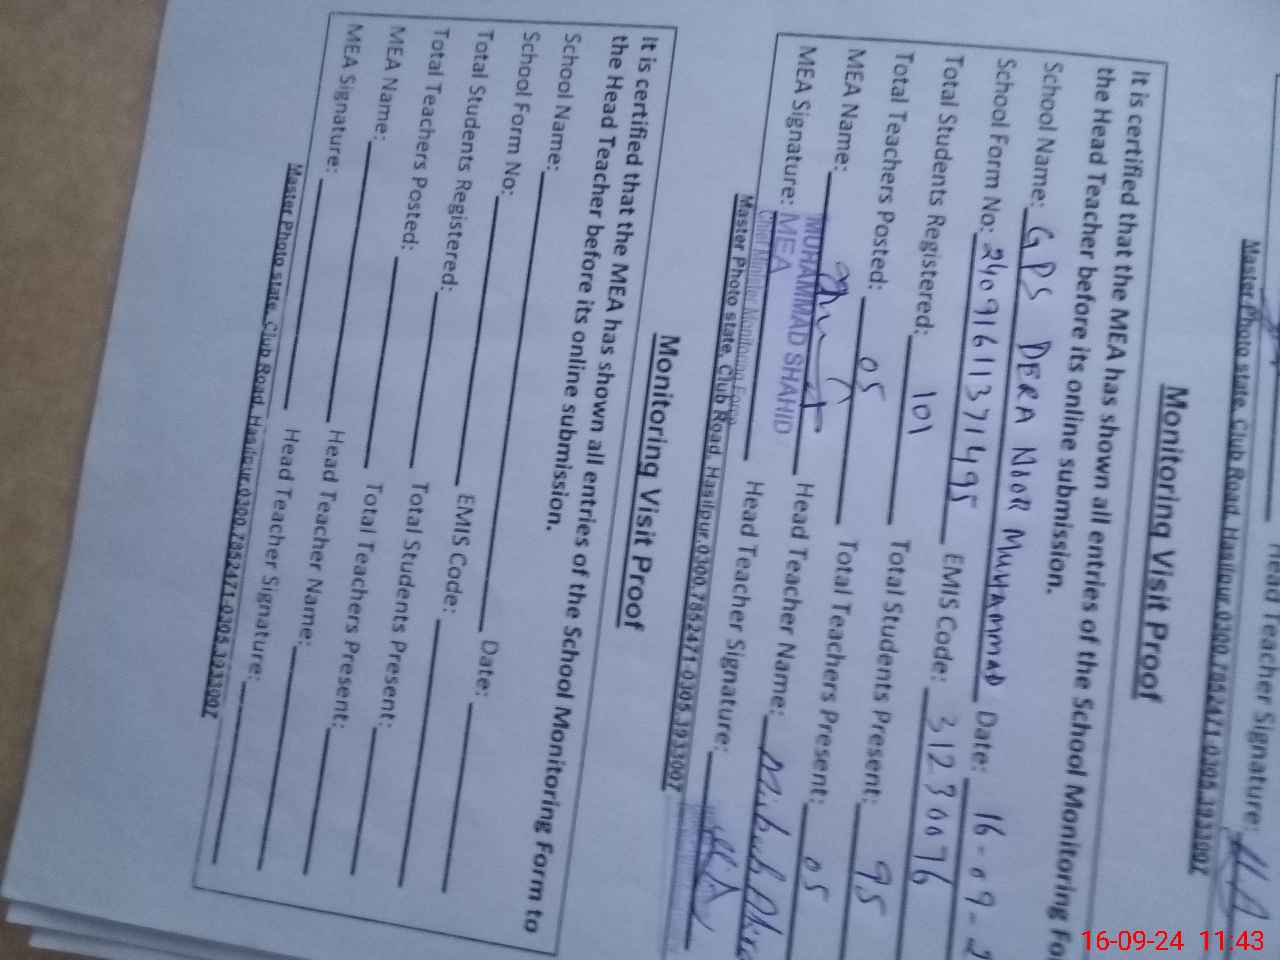 Head Teacher Signature:
Master Photo state, Club Road, Hasilpur.0300.7852471-0305.3933007
Monitoring Visit Proof
It is certified that the MEA has shown all entries of the School Monitoring Fo
the Head Teacher before its online submission.
School Name: GPS DERA NOOR MUHAMMAD Date: 16-09-2
School Form No: 24091611371495 EMIS Code: 31230076
Total Students Registered: 101 Total Students Present: 95
Total Teachers Posted: 05 Total Teachers Present: 05
MEA Name: MUHAMMAD SHAHID Head Teacher Name: Misbah
MEA Signature: MEA Head Teacher Signature:
Chief Minister Monitoring Force
Master Photo state, Club Road, Hasilpur.0300.7852471-0305.3933007
Monitoring Visit Proof
It is certified that the MEA has shown all entries of the School Monitoring Form to
the Head Teacher before its online submission.
School Name: Date:
School Form No: EMIS Code:
Total Students Registered: Total Students Present:
Total Teachers Posted: Total Teachers Present:
MEA Name: Head Teacher Name:
MEA Signature: Head Teacher Signature:
Master Photo state, Club Road, Hasilpur.0300.7852471-0305.3933007
16-09-24 11:43